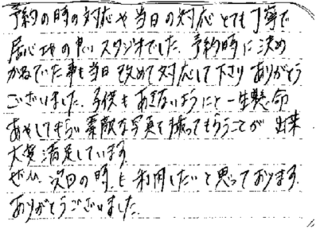 予約の時の対応や当日の対応とても丁寧で
居心地の良いスタジオでした。予約時に決め
かねてた事も当日改めて対応して下さりありがとう
ございました。子供もあきないようにと一生懸命
あやしてもらい素敵な写真を撮ってもらうことが出来
大変満足しています
ぜひ次回の時も利用したいと思っております。
ありがとうございました。